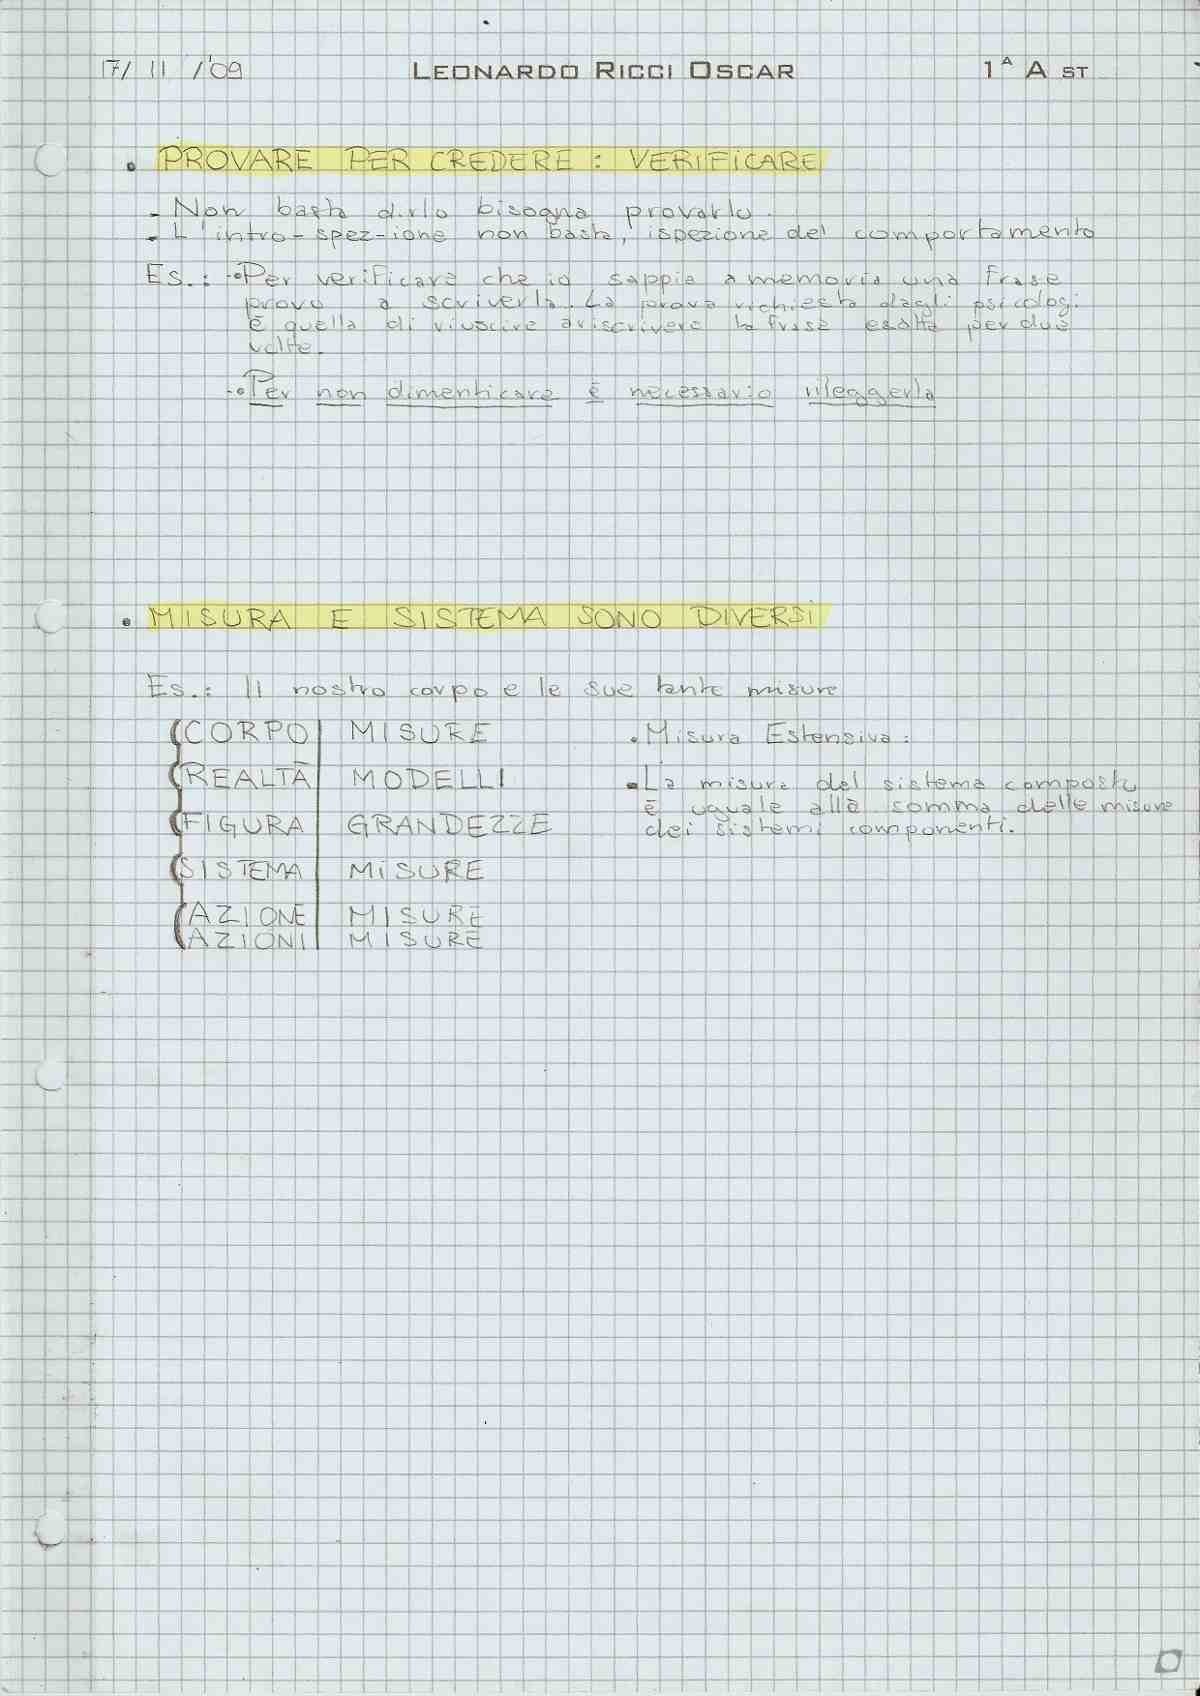 17/ 11 /'09 LEONARDO RICCI OSCAR 1ª A ST
• PROVARE PER CREDERE : VERIFICARE
- Non basta dirlo bisogna provarlo.
- L'intro-spez-ione non basta, ispezione del comportamento
Es.: -•Per verificare che io sappia a memoria una frase
provo a scriverla. La prova richiesta dagli psicologi
è quella di riuscire a riscrivere la frase esatta per due
volte.
-•Per non dimenticare è necessario rileggerla
• MISURA E SISTEMA SONO DIVERSI
Es.: Il nostro corpo e le sue tante misure
CORPO | MISURE
REALTÀ | MODELLI
FIGURA | GRANDEZZE
SISTEMA | MISURE
AZIONE | MISURE
AZIONI | MISURE
• Misura Estensiva:
•La misura del sistema composto
è uguale alla somma delle misure
dei sistemi componenti.